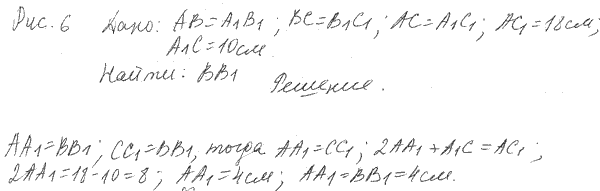 Рис. 6 Дано: AB=A₁B₁; BC=B₁C₁; AC=A₁C₁; AC₁=18см;
A₁C=10см
Найти: BB₁
Решение.
AA₁=BB₁; CC₁=BB₁, тогда AA₁=CC₁; 2AA₁+A₁C=AC₁;
2AA₁=18-10=8; AA₁=4см; AA₁=BB₁=4см.